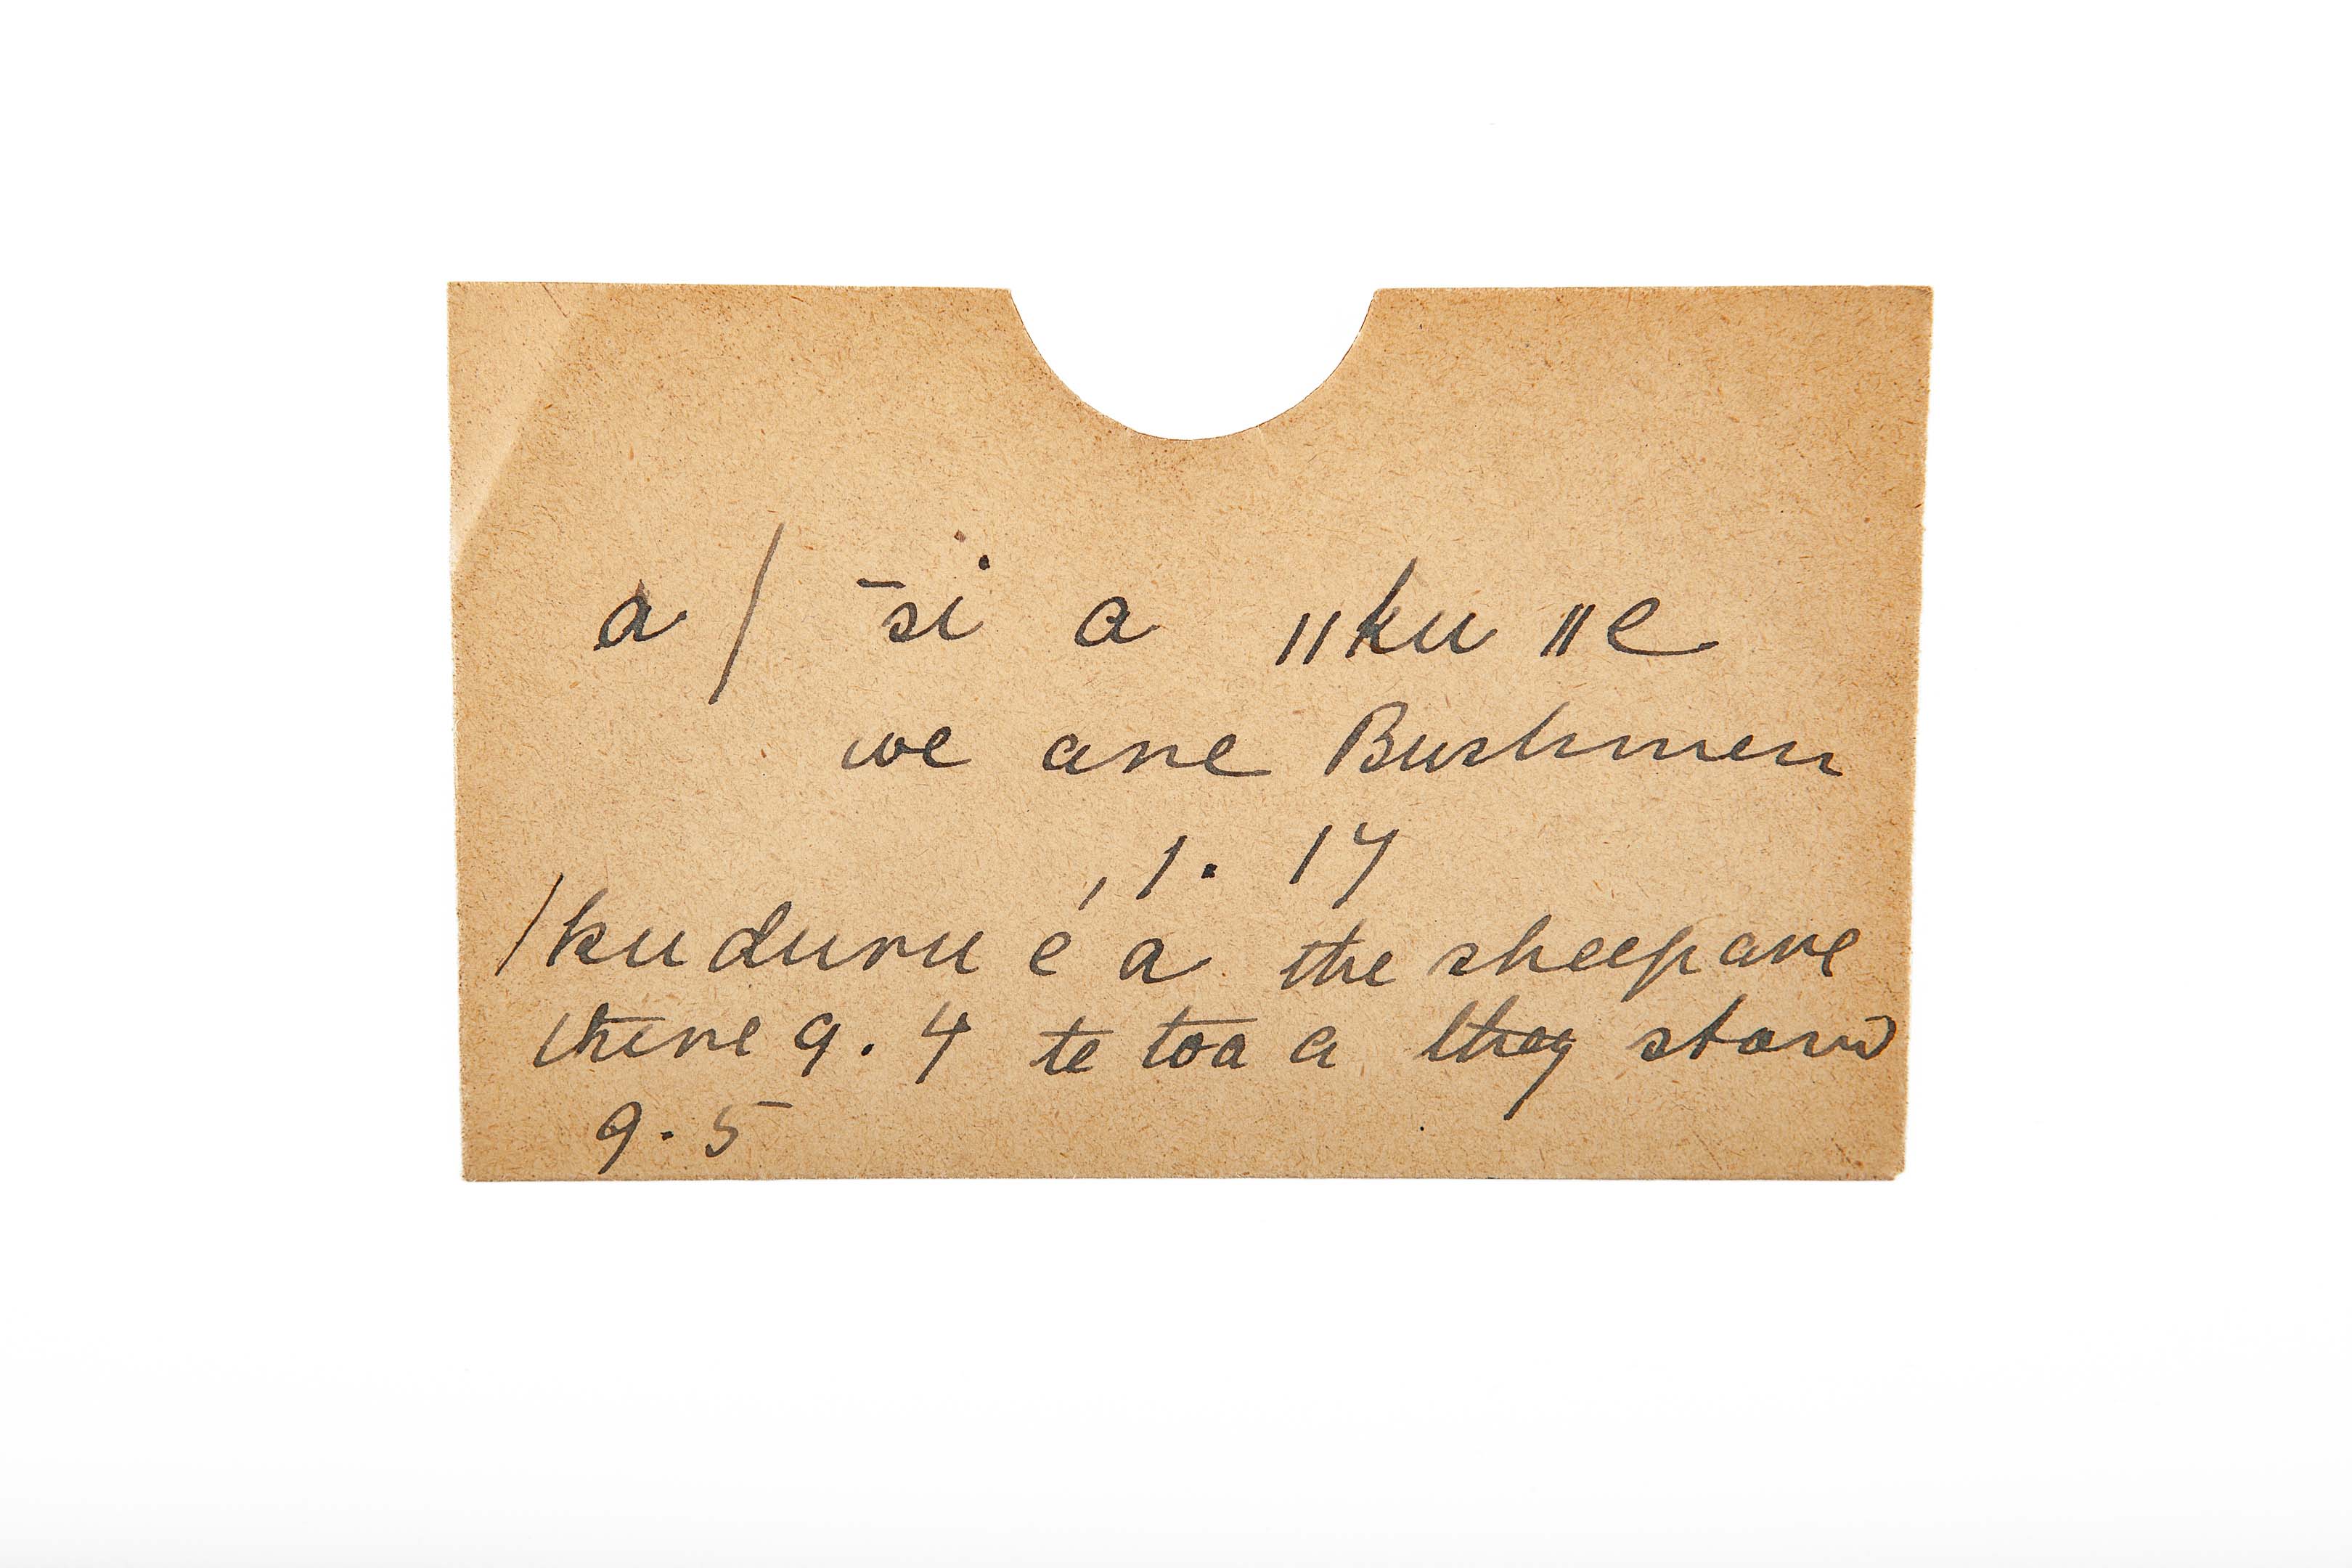 a / ‾si a ǁku ǁe
we are Bushmen
, 1. 17
/kuduru é a the sheep are
there 9. 4 te toa a they stand
9. 5